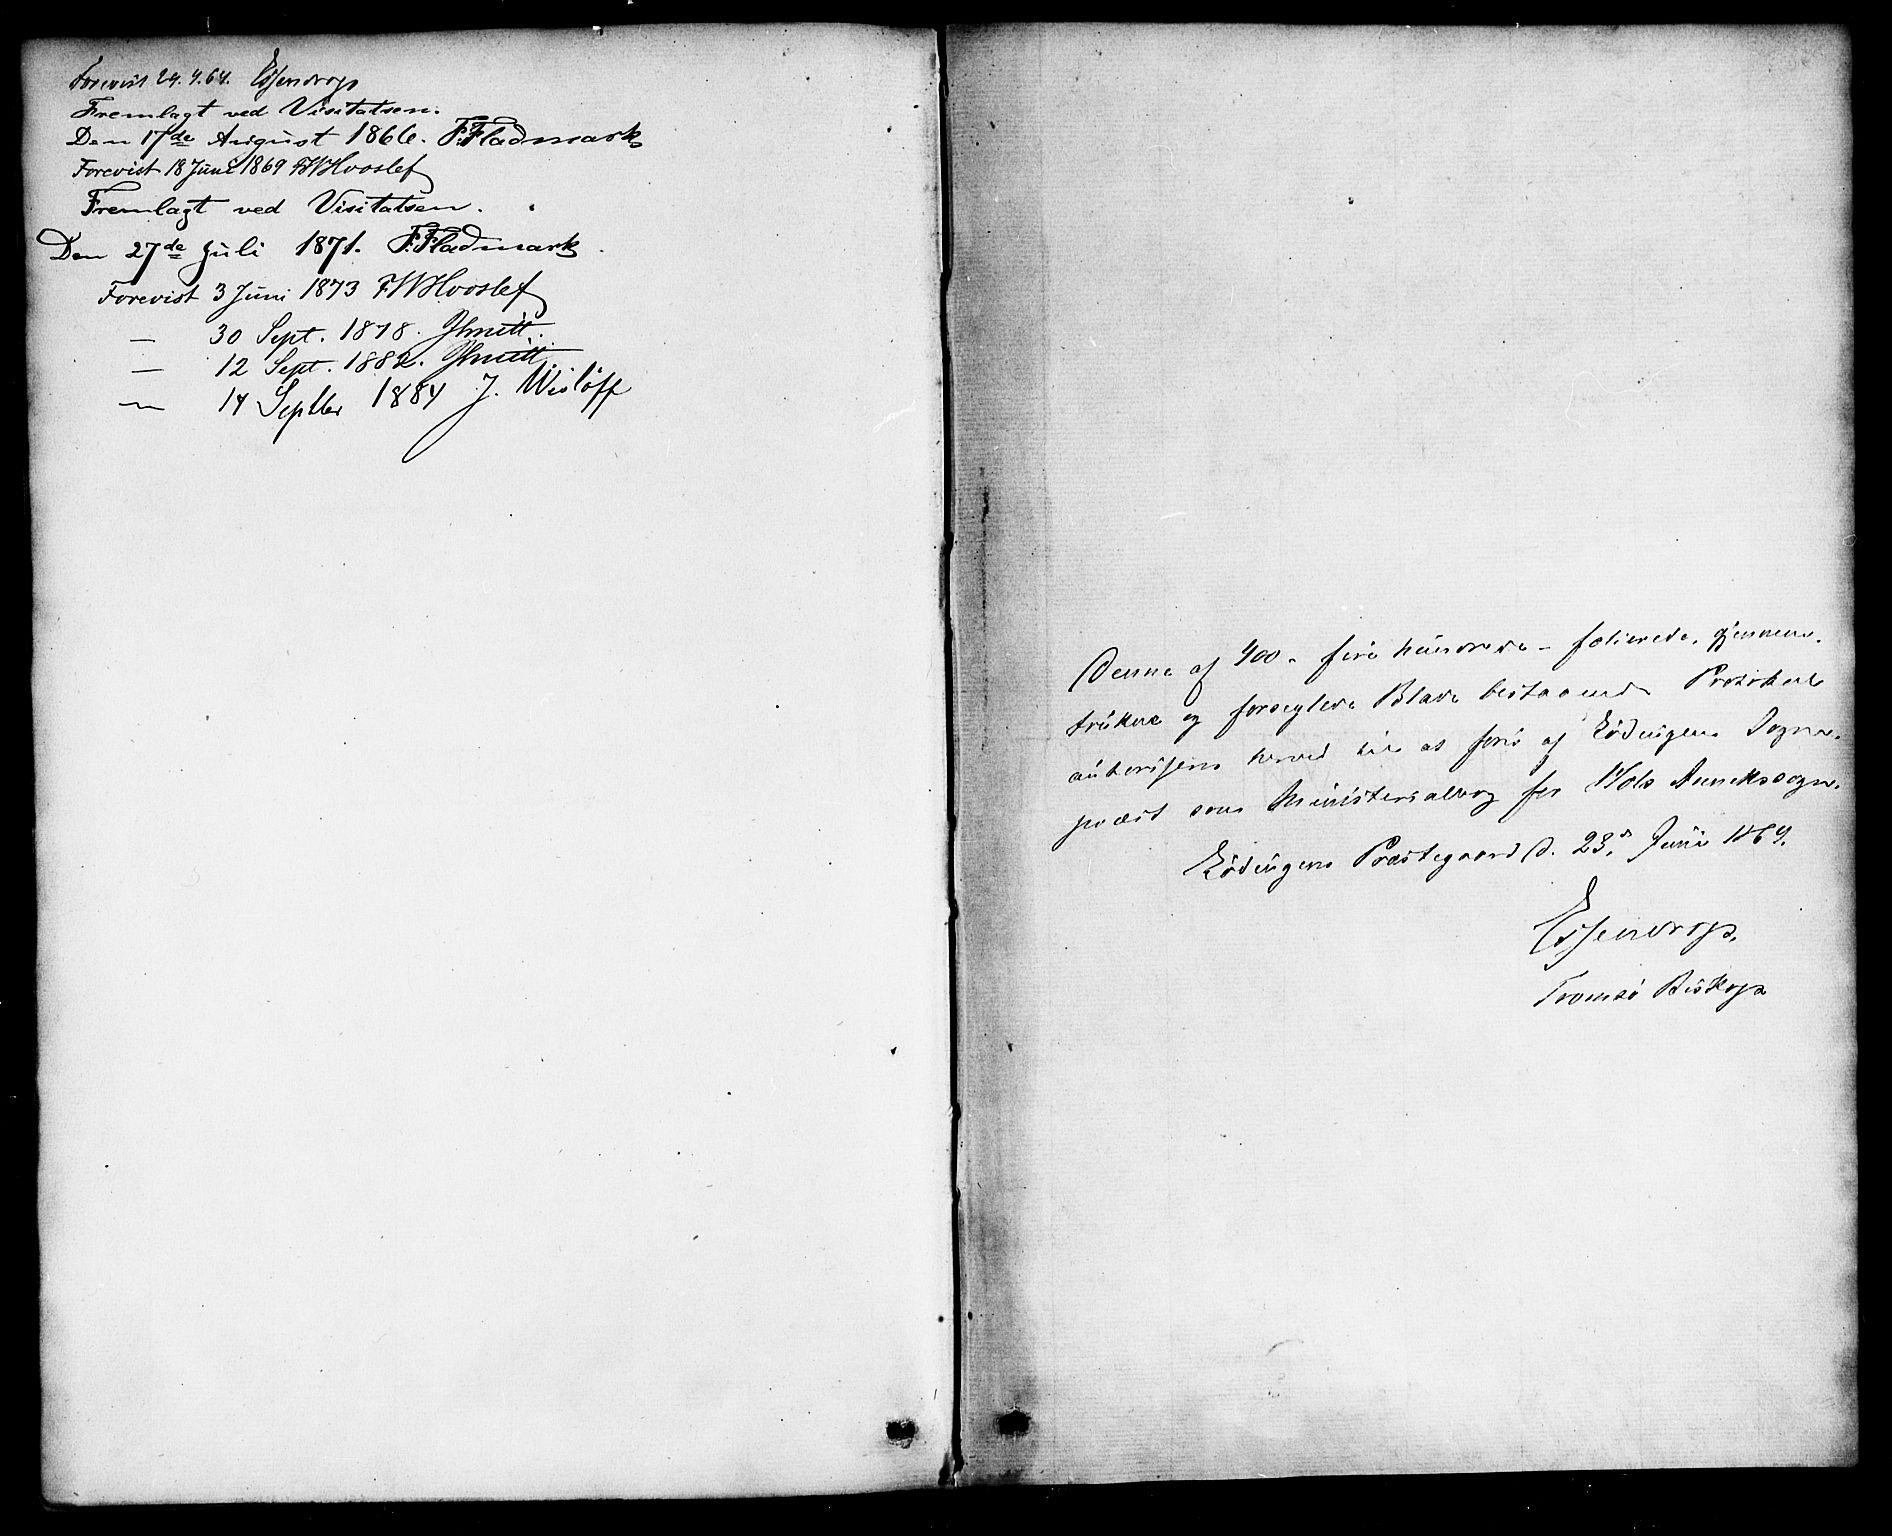 Forevist 24.7.64. Essendrop
Fremlagt ved Visitatsen.
Den 17de August 1866. F. Fladmark
Forevist 18 Juni 1869 FWHvoslef
Fremlagt ved Visitatsen.
Den 27de Juli 1871. F. Fladmark
Forevist 3 Juni 1873 FWHvoslef
— 30 Sept. 1878.
— 12 Sept. 1882.
— 14 Septbr 1884 J. Wisløff
Denne af 400 - fire hundrede - folierede, gjennem-
trukne og forseglede Blade bestaaende Protokol
autoriseres herved til at føres af Lødingens Sogne-
præst som Ministerialbog for Hols Annekssogn.
Lødingens Præstegaard d. 23d Juni 1864.
Essendrop.
Tromsø Biskop